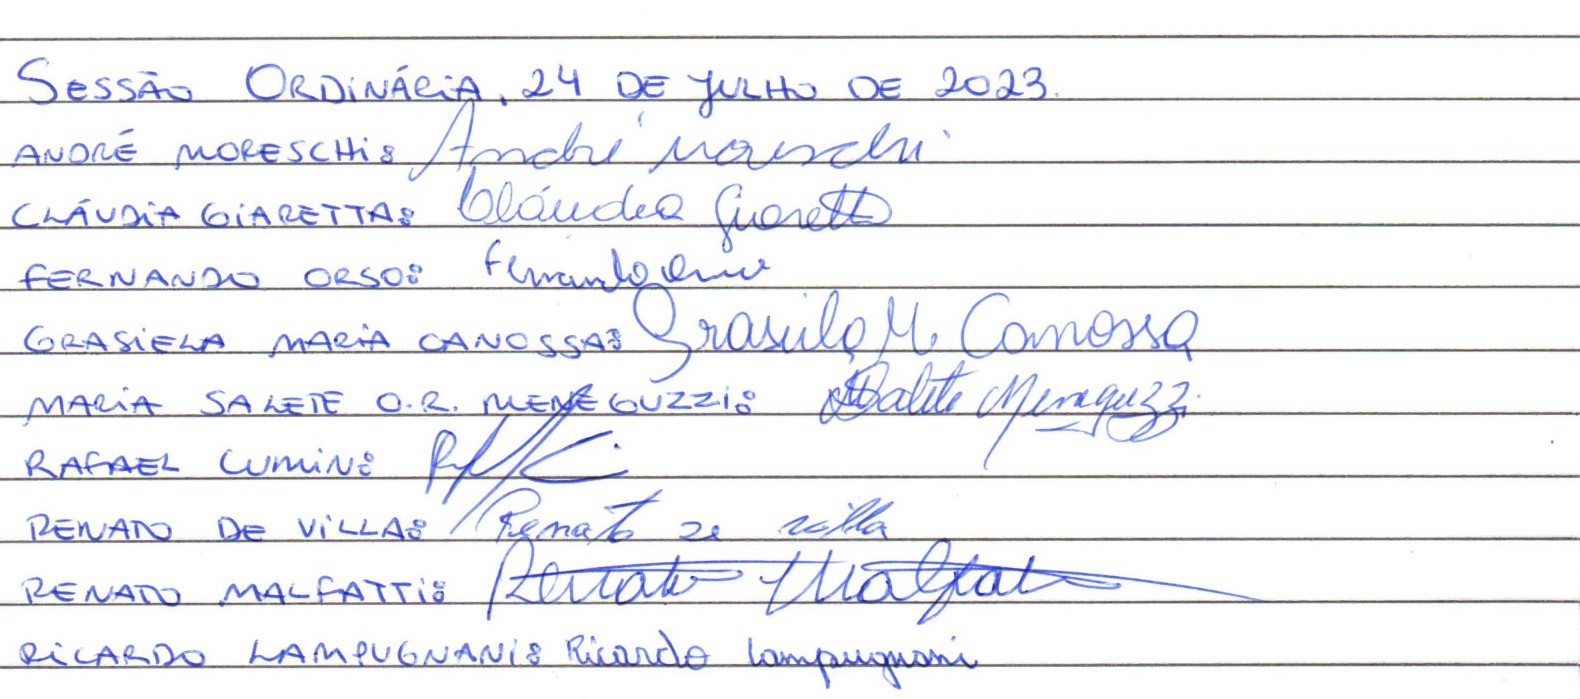 SESSÃO ORDINÁRIA, 24 DE JULHO DE 2023.
ANDRÉ MORESCHI: André Moreschi
CLÁUDIA GIARETTA: Cláudia Giaretta
FERNANDO ORSO: Fernando Orso
GRASIELA MARIA CANOSSA: Grasiela M. Canossa
MARIA SALETE O.R. MENEGUZZI: Salete Meneguzzi
RAFAEL CUMIN:
RENATO DE VILLA: Renato de villa
RENATO MALFATTI: Renato Malfatti
RICARDO LAMPUGNANI: Ricardo Lampugnani